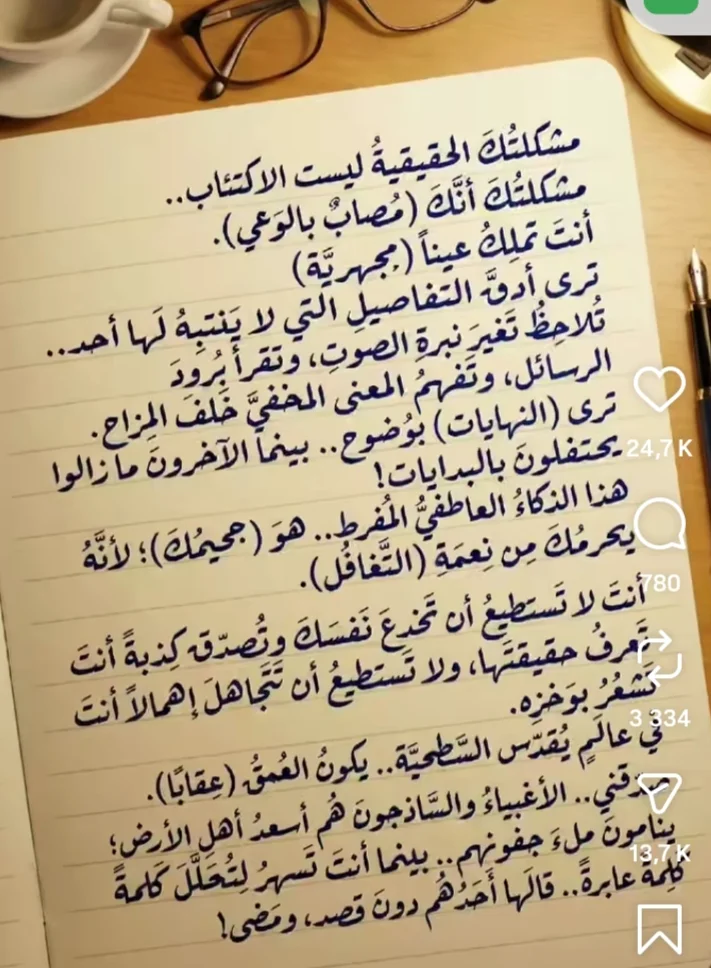 مشكلتُكَ الحقيقيةُ ليست الاكتئاب..
مشكلتُكَ أنَّكَ (مُصابٌ بالوَعي).
أنتَ تملِكُ عيناً (مِجهريَّة)
ترى أدقَّ التفاصيلِ التي لا يَنتبِهُ لَها أحد..
تُلاحِظُ تَغيرَ نبرةِ الصوتِ، وتقرأ بُرودَ
الرسائل، وتَفهمُ المعنى المخفيَّ خَلفَ المِزاح.
ترى (النهايات) بوُضوح.. بينما الآخرونَ ما زالوا
يحتفلونَ بالبدايات!
24,7K
هذا الذكاءُ العاطفيُّ المُفرط.. هوَ (جحيمُكَ)؛ لأنَّهُ
يحرمُكَ مِن نِعمَةِ (التَّغافُل).
780
أنتَ لا تَستطيعُ أن تَخدِعَ نَفسَكَ وتُصدّق كِذبةً أنتَ
تَعرفُ حقيقتَها، ولا تَستطيعُ أن تَتَجاهلَ إهمالاً أنتَ
تَشعُرُ بوَخزِه.
3 334
في عالَمٍ يُقدّس السَّطحيَّة.. يكونُ العُمقُ (عِقابًا).
صدقني.. الأغبياءُ والسَّاذجونَ هُم أسعدُ أهلِ الأرض؛
ينامونَ ملءَ جفونهم.. بينما أنتَ تَسهرُ لِتُحَلّلَ كَلمةً
13,7K
كلِمةً عابرةً.. قالَها أَحَدُهُم دونَ قصد، ومَضى!